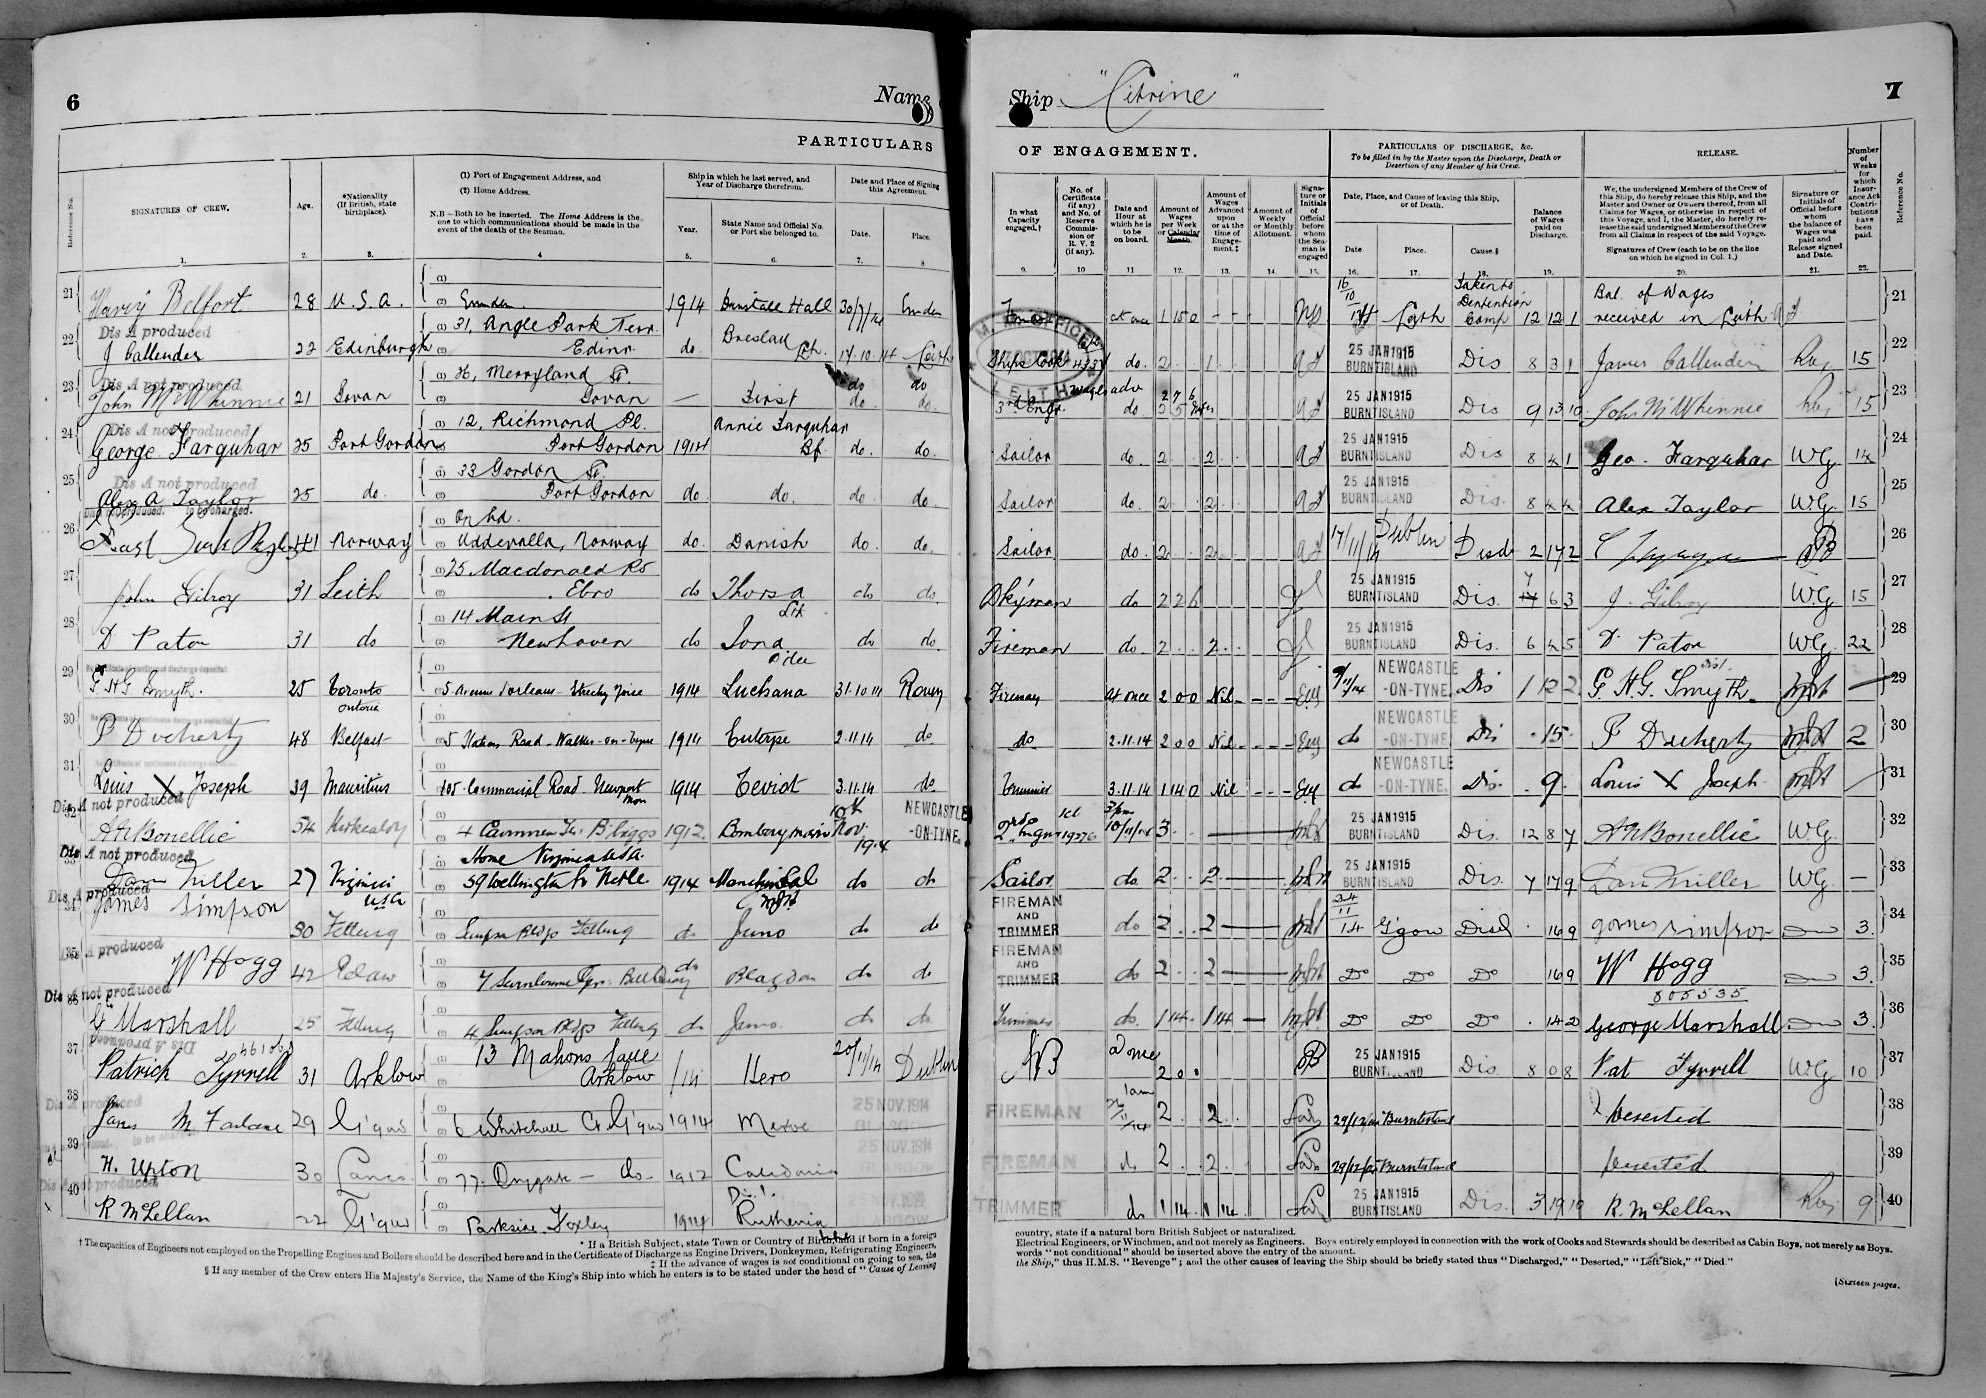 6
Name
Ship "Citrine"
7
PARTICULARS
OF ENGAGEMENT.
PARTICULARS OF DISCHARGE, &c.
To be filled in by the Master upon the Discharge, Death or Desertion of any Member of his Crew.
RELEASE.
Reference No.
SIGNATURES OF CREW.
Age.
*Nationality (If British, state birthplace).
(1) Port of Engagement Address, and
(2) Home Address.
N.B.—Both to be inserted. The Home Address is the one to which communications should be made in the event of the death of the Seaman.
Ship in which he last served, and Year of Discharge therefrom.
Year.
State Name and Official No. or Port she belonged to.
Date and Place of Signing this Agreement.
Date.
Place.
In what Capacity engaged.†
No. of Certificate (if any) and No. of Reserve Commission or R.V. 2 (if any).
Date and Hour at which he is to be on board.
Amount of Wages per Week or Calendar Month.
Amount of Wages Advanced upon or at the time of Engagement.‡
Amount of Weekly or Monthly Allotment.
Signature or Initials of Official before whom the Seaman is engaged
Date, Place, and Cause of leaving this Ship, or of Death.
Date
Place.
Cause.§
Balance of Wages paid on Discharge.
We, the undersigned Members of the Crew of this Ship, do hereby release this Ship, and the Master and Owner or Owners thereof, from all Claims for Wages, or otherwise in respect of this Voyage, and I, the Master, do hereby release the said undersigned Members of the Crew from all Claims in respect of the said Voyage.
Signatures of Crew (each to be on the line on which he signed in Col. 1.)
Signature or Initials of Official before whom the balance of Wages was paid and Release signed and Date.
Number of Weeks for which Insurance Act Contributions have been paid.
Reference No.
1. 2. 3. 4 5. 6. 7. 8
9. 10 11 12. 13. 14. 15. 16. 17. 18. 19. 20. 21. 22.
21 Harry Belfort 28 U.S.A. Emden 1914 Hall 30/7/14 Emden
at once 1 15 0 16/10/14 Leith Taken to Dentention Camp 12 12 1 Bal. of Wages received in Leith 21
Dis A produced
22 J Callender 22 Edinburgh 31, Angle Park Terr. Edinr do. Breslau Lh. 17.10.14 Leith
Ships Cook do. 2 1 25 JAN 1915 BURNTISLAND Dis 8 3 1 James Callender 15 22
Dis A not produced
23 John McWhinnie 21 Govan 36, Merryland St. Govan — First do do
3rd Engr. do 25 JAN 1915 BURNTISLAND Dis 9 13 10 John McWhinnie 15 23
Dis A not produced
24 George Farquhar 35 Port Gordon 12, Richmond Pl. Port Gordon 1914 Annie Farquhar Bf. do. do.
Sailor do. 2 2 25 JAN 1915 BURNTISLAND Dis 8 4 1 Geo. Farquhar W.G. 14 24
Dis A not produced
25 Alex A Taylor 25 do. 33 Gordon St. Port Gordon do. do. do. do
Sailor do. 2 2 25 JAN 1915 BURNTISLAND Dis. 8 4 4 Alex Taylor W.G. 15 25
26 41 Norway On bd. Uddevalla, Norway do. Danish do. do.
Sailor do. 2 2 17/11/14 Dublin Disd 2 17 2 26
27 John Gilroy 31 Leith 75 Macdonald Rd Ebro do Thorsa Lth do do.
Dkyman do 2 2 6 25 JAN 1915 BURNTISLAND Dis. 7 6 3 J. Gilroy W.G. 15 27
28 D Paton 31 do 14 Main St Newhaven do Iona do do.
Fireman do. 2 2 25 JAN 1915 BURNTISLAND Dis. 6 4 5 D Paton W.G. 22 28
29 G H G Smyth. 25 Toronto Ontario 1914 Luchana 31.10.14 Rouen
Fireman At once 2 0 0 Nil 9/11/14 NEWCASTLE-ON-TYNE. Dis 1 12 2 G. H. G. Smyth 29
30 P Docherty 48 Belfast 5 Station Road Walker-on-Tyne 1914 Euterpe 2.11.14 do.
do 2.11.14 2 0 0 Nil do NEWCASTLE-ON-TYNE. Dis 15 P Docherty 2 30
31 Louis X Joseph 39 Mauritius 105 Commercial Road Newport Mon 1914 Teviot 3.11.14 do.
Trimmer 3.11.14 1 14 0 Nil do NEWCASTLE-ON-TYNE. Dis. 9. Louis X Joseph 31
Dis A not produced
32 A N Bonellie 54 Kirkcaldy 1912. 10th Nov. 1914 NEWCASTLE-ON-TYNE.
2nd Engr 1st 19376 3pm 10/11/14 3 25 JAN 1915 BURNTISLAND Dis. 12 8 7 A N Bonellie W.G. 32
Dis A not produced
33 Dan Miller 27 Virginia USA Home Virginia USA. 59 Wellington St 1914 do do
Sailor do. 2 2 25 JAN 1915 BURNTISLAND Dis. 7 17 9 Dan Miller W.G. — 33
Dis A produced
34 James Simpson 30 Felling Simpson Bldgs Felling do Juno do do
FIREMAN AND TRIMMER do 2 2 24/11/14 Ggow Disd 16 9 James Simpson 3. 34
Dis A produced
35 W Hogg 42 do Blagdon do do
FIREMAN AND TRIMMER do 2 2 Do Do Do 16 9 W Hogg 3. 35
805535
Dis A not produced
36 G Marshall 25 Felling 4 Simpson Bldgs Felling do Juno. do do
Trimmer do. 1 14 1 14 Do Do Do 14 2 George Marshall 3. 36
Dis A produced
37 Patrick Tyrrell 31 Arklow 13 Mahons Lane Arklow /14 Hero 20/11/14 Dublin
AB 2 0 0 25 JAN 1915 BURNTISLAND Dis. 8 0 8 Pat Tyrrell W.G 10 37
Dis A produced
38 James McFarlane 29 G'gow 6 Whitehall Ct G'gow 1914 Merve 25 NOV. 1914 GLASGOW
FIREMAN 2 2 29/12/14 Burntisland Deserted 38
39 H. Upton 30 Lancs. 77. do. 1912 Caledonia 25 NOV. 1914 GLASGOW
FIREMAN do 2 2 29/12/14 Burntisland Deserted 39
Dis A not produced
40 R McLellan 22 G'gow Parkside Foxley 1914 Ruthenia 25 NOV. 1914 GLASGOW
TRIMMER do 1 14 1 14 25 JAN 1915 BURNTISLAND Dis. 3 19 10 R. McLellan 9 40
* If a British Subject, state Town or Country of Birth, and if born in a foreign
country, state if a natural born British Subject or naturalized.
† The capacities of Engineers not employed on the Propelling Engines and Boilers should be described here and in the Certificate of Discharge as Engine Drivers, Donkeymen, Refrigerating Engineers,
Electrical Engineers, or Winchmen, and not merely as Engineers. Boys entirely employed in connection with the work of Cooks and Stewards should be described as Cabin Boys, not merely as Boys.
‡ If the advance of wages is not conditional on going to sea, the
words "not conditional" should be inserted above the entry of the amount.
§ If any member of the Crew enters His Majesty's Service, the Name of the King's Ship into which he enters is to be stated under the head of "Cause of Leaving
the Ship," thus H.M.S. "Revenge"; and the other causes of leaving the Ship should be briefly stated thus "Discharged," "Deserted," "Left Sick," "Died."
(Sixteen pages.